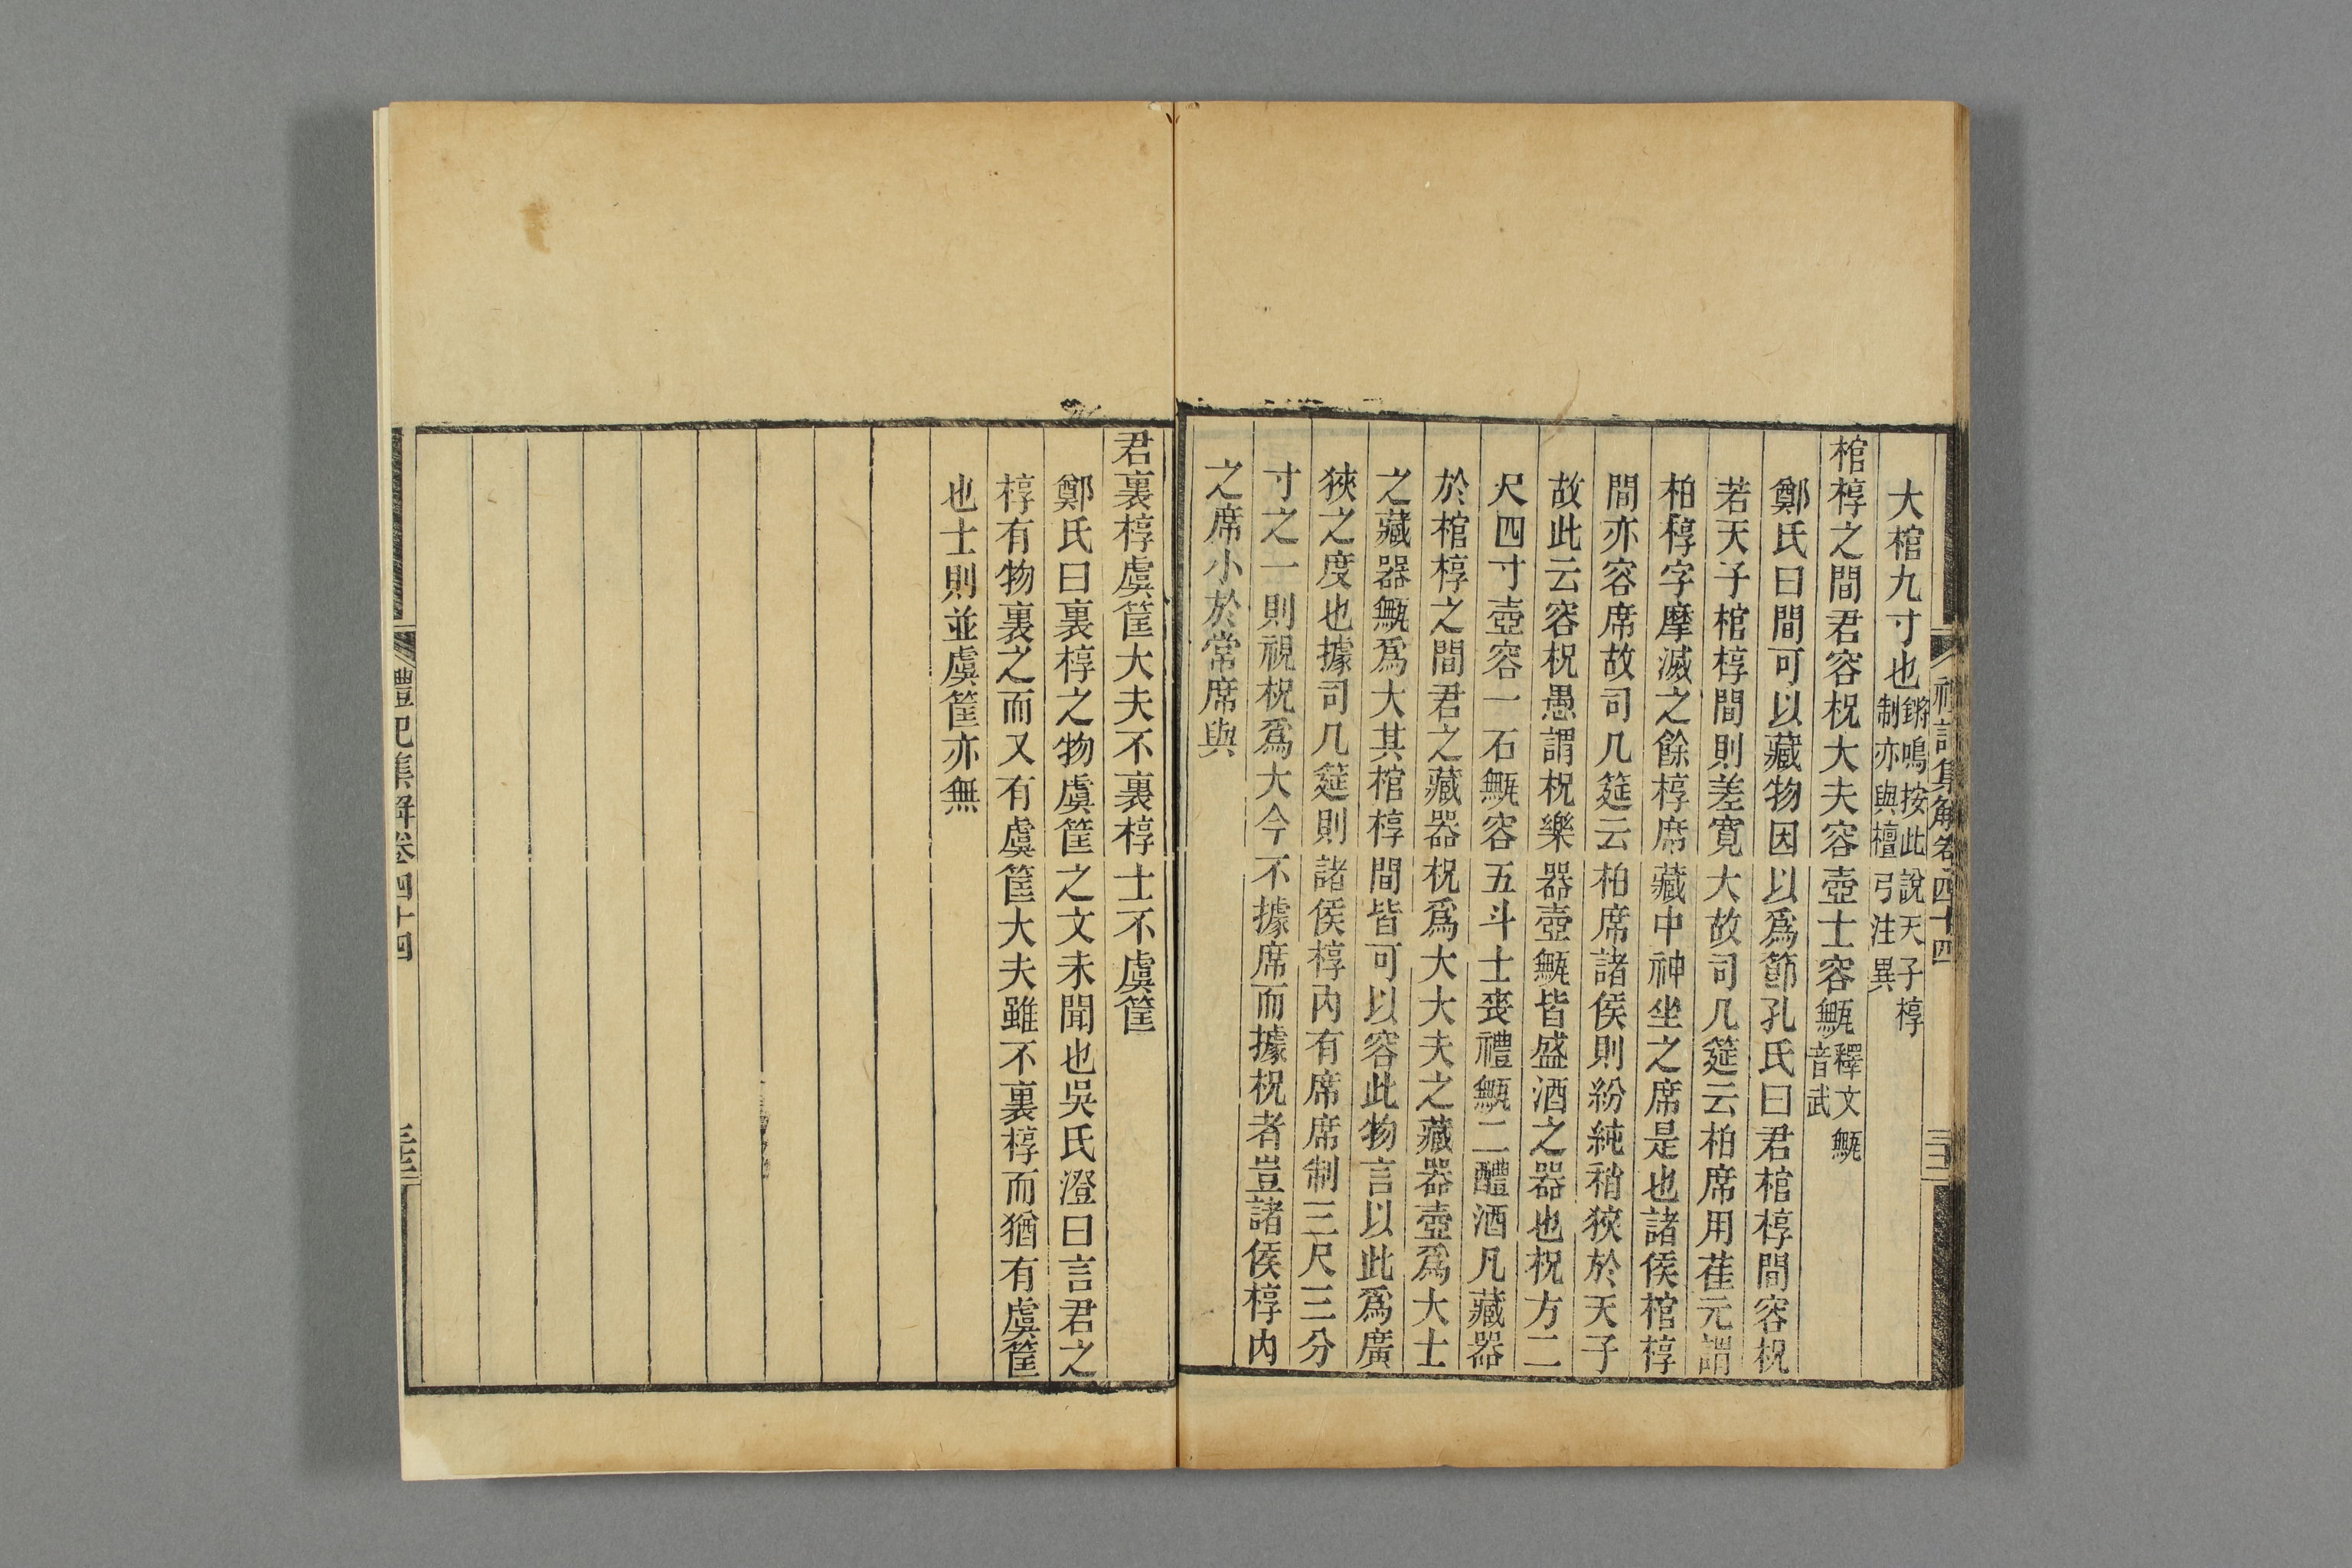 禮記集解卷四十四
三十二
大棺九寸也鏘鳴按此說天子椁制亦與檀弓注異
棺椁之間君容柷大夫容壺士容甒釋文甒音武
鄭氏曰間可以藏物因以爲節孔氏曰君棺椁間容柷
若天子棺椁間則差寬大故司几筵云柏席用萑元謂
柏椁字摩滅之餘椁席藏中神坐之席是也諸侯棺椁
間亦容席故司几筵云柏席諸侯則紛純稍狹於天子
故此云容柷愚謂柷樂器壺甒皆盛酒之器也柷方二
尺四寸壺容一石甒容五斗士喪禮甒二醴酒凡藏器
於棺椁之間君之藏器柷爲大大夫之藏器壺爲大士
之藏器甒爲大其棺椁間皆可以容此物言以此爲廣
狹之度也據司几筵則諸侯椁內有席席制三尺三分
寸之一則視柷爲大今不據席而據柷者豈諸侯椁內
之席小於常席與
君裏椁虞筐大夫不裏椁士不虞筐
鄭氏曰裏椁之物虞筐之文未聞也吳氏澄曰言君之
椁有物裏之而又有虞筐大夫雖不裏椁而猶有虞筐
也士則並虞筐亦無
禮記集解卷四十四